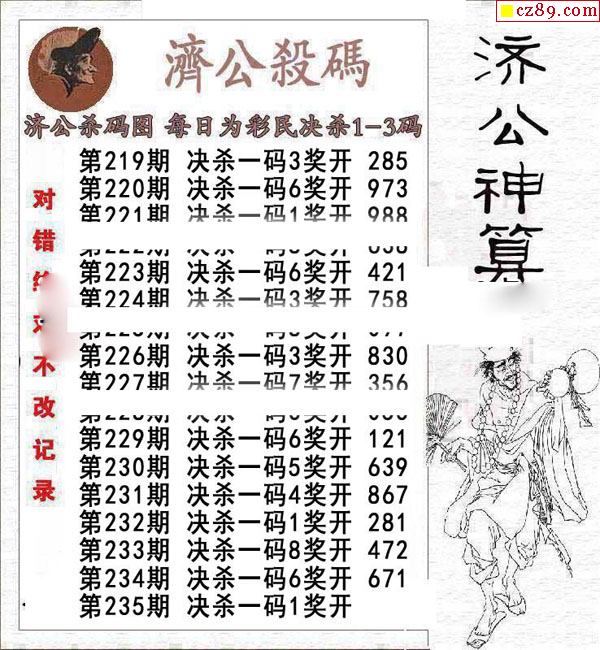 cz89.com
濟公殺碼
济公杀码图 每日为彩民决杀1-3码
第219期 决杀一码3奖开 285
第220期 决杀一码6奖开 973
第221期 决杀一码1奖开 988
第223期 决杀一码6奖开 421
第224期 决杀一码3奖开 758
第226期 决杀一码3奖开 830
第227期 决杀一码7奖开 356
第229期 决杀一码6奖开 121
第230期 决杀一码5奖开 639
第231期 决杀一码4奖开 867
第232期 决杀一码1奖开 281
第233期 决杀一码8奖开 472
第234期 决杀一码6奖开 671
第235期 决杀一码1奖开
对错
不改记录
济公神算